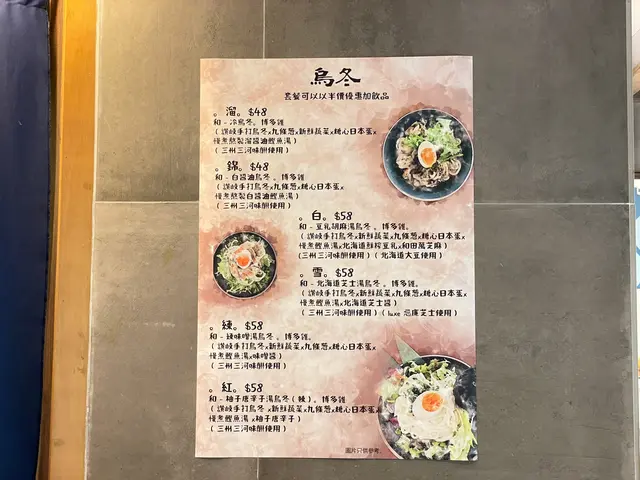 烏冬
套餐可以以半價優惠加飲品
。溜。$48
和 - 冷烏冬。博多雞
(讃岐手打烏冬x九條葱x新鮮蔬菜x糖心日本蛋x
慢煮熬製溜醬油鰹魚湯)
(三州三河味醂使用)
。錦。$48
和 - 白醬油烏冬。博多雞
(讃岐手打烏冬x九條葱x糖心日本蛋x
慢煮熬製白醬油鰹魚湯)
(三州三河味醂使用)
。白。$58
和 - 豆乳胡麻湯烏冬。博多雞
(讃岐手打烏冬x新鮮蔬菜x九條葱x糖心日本蛋x
慢煮鰹魚湯x北海道鮮榨豆乳x和田萬芝麻)
(三州三河味醂使用)(北海道大豆使用)
。雪。$58
和 - 北海道芝士湯烏冬。博多雞
(讃岐手打烏冬x新鮮蔬菜x九條葱x糖心日本蛋x
慢煮鰹魚湯x北海道芝士醬)
(三州三河味醂使用)(luxe 忌廉芝士使用)
。辣。$58
和 - 辣味噌湯烏冬。博多雞
(讃岐手打烏冬x新鮮蔬菜x九條葱x糖心日本蛋x
慢煮鰹魚湯x味噌醬)
(三州三河味醂使用)
。紅。$58
和 - 柚子唐辛子湯烏冬(辣)。博多雞
(讃岐手打烏冬x新鮮蔬菜x九條葱x糖心日本蛋x
慢煮鰹魚湯x柚子唐辛子)
(三州三河味醂使用)
圖片只供參考。